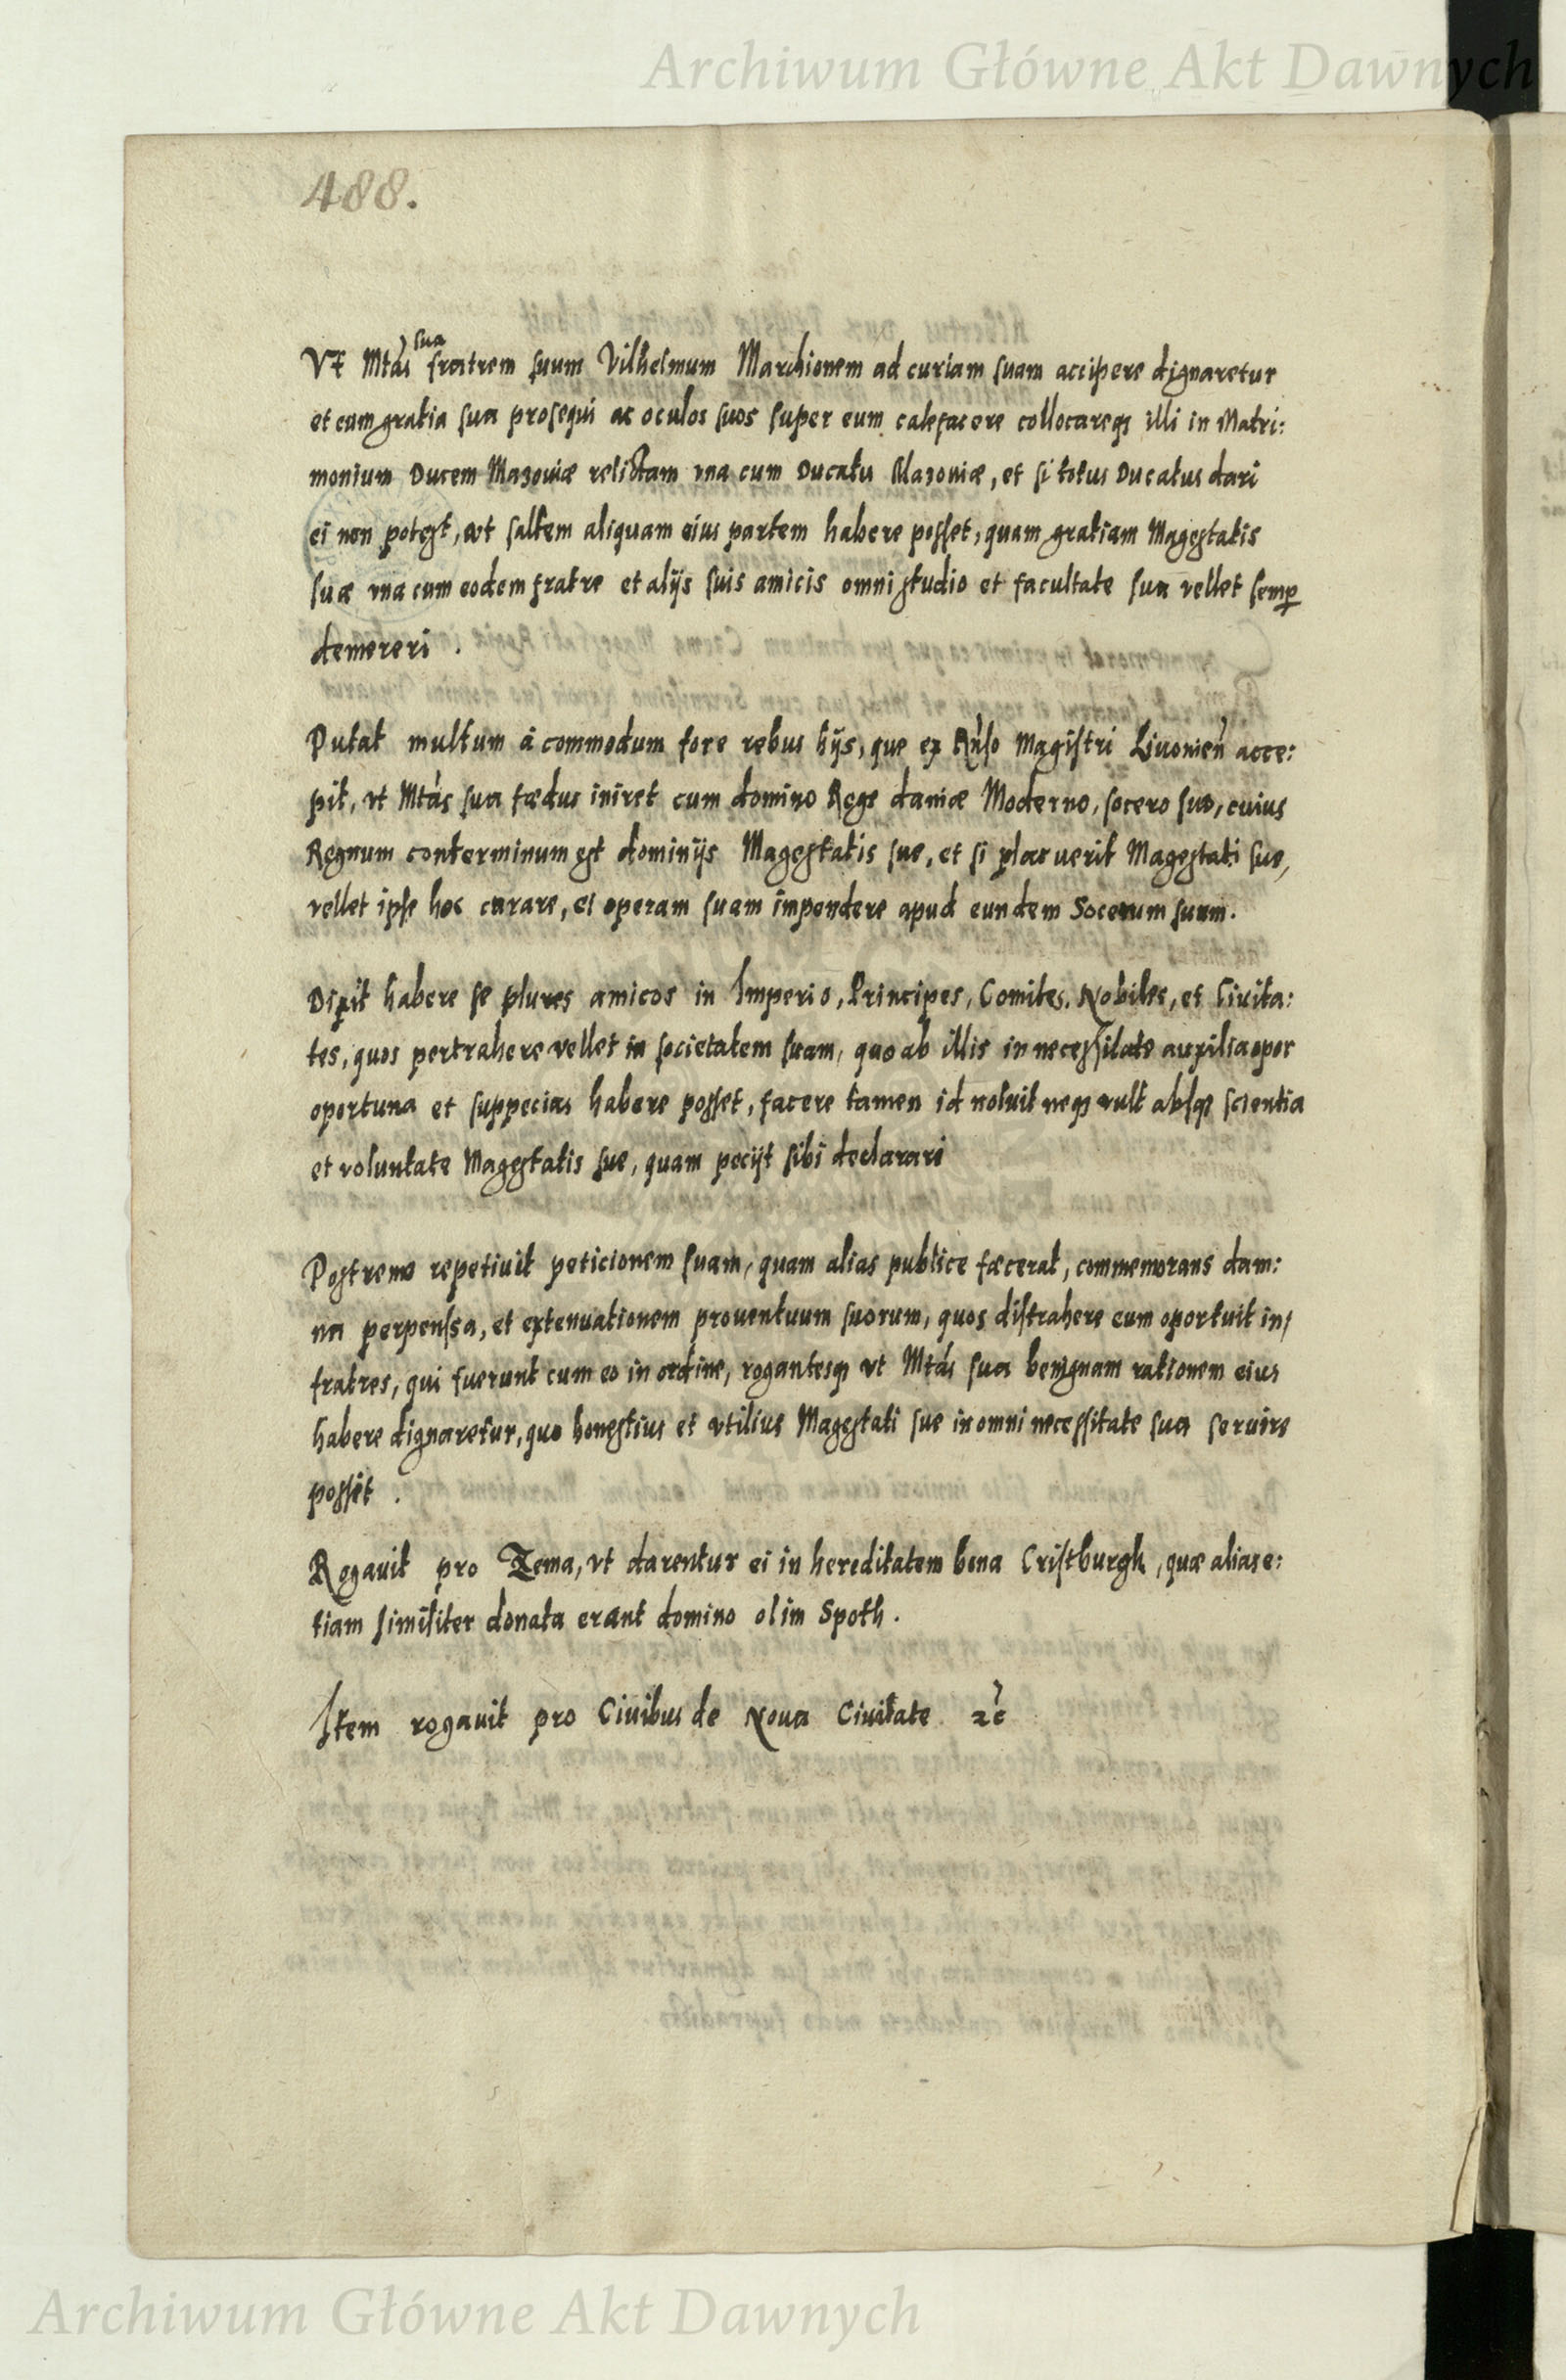 Archiwum Główne Akt Dawnych
488.
Vt Mtás sua fratrem suum Vilhelmum Marchionem ad curiam suam accipere dignaretur
et cum gratia sua prosequi ac oculos suos super eum calefacere collocareqȝ illi in Matri:
monium Ducem Mazoviæ relictam vna cum Ducatu Mazoviæ, et si totus Ducatus dari
ei non potest, vt saltem aliquam eius partem habere posset, quam gratiam Magestatis
suæ vna cum eodem fratre et alijs suis amicis omni studio et facultate sua vellet semꝑ
demereri .
Putat multum á commodum fore rebus hijs, que ex Rńso Magistri Liuonień acce:
pit, vt Mtás sua fœdus iniret cum domino Rege daniæ Moderno, socero suo, cuius
Regnum conterminum est dominijs Magestatis sue, et si placuerit Magestati sue,
vellet ipse hoc curare, et operam suam impendere apud eundem Socerum suum.
Dixit habere se plures amicos in Imperio, Principes, Comites, Nobiles, et Civita:
tes, quos pertrahere vellet in societatem suam, quo ab illis in necessitate auxilia opor
oportuna et suppecias habere posset, facere tamen id noluit neqȝ vult absqȝ scientia
et voluntate Magestatis sue, quam peciit sibi declarari
Postremo repetiuit peticionem suam, quam alias publice fæcerat, commemorans dam:
na perpenssa, et extenuationem prouentuum suorum, quos distrahere eum oportuit in/
fratres, qui fuerunt cum eo in ordine, rogantesqȝ vt Mtás sua benignam rationem eius
habere dignaretur, quo honestius et vtilius Magestati sue in omni necessitate sua seruire
possêt .
Rogauit pro Tema, vt darentur ei in hereditatem bona Cristburgh, quæ alias e:
tiam similiter donata erant domino olim Spoth .
Item rogauit pro Ciuibus de Noua Ciuitate ꝛć
Archiwum Główne Akt Dawnych